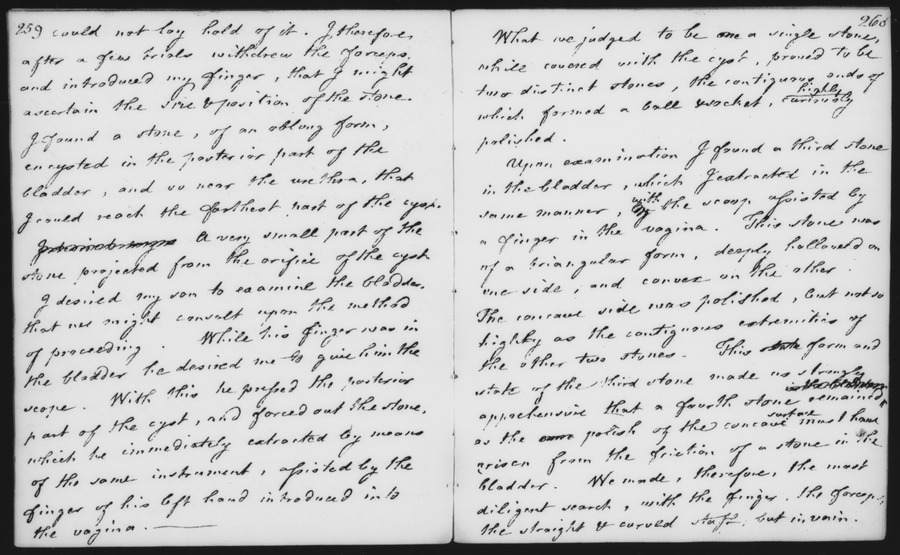 259
could not lay hold of it. I therefore,
after a few trials withdrew the forceps,
and introduced my finger, that I might
ascertain the size & position of the stone.
I found a stone, of an oblong form,
encysted in the posterior part of the
bladder, and so near the urethra, that
I could reach the farthest part of the cyst.
A very small part of the
stone projected from the orifice of the cyst.
I desired my son to examine the bladder,
that we might consult upon the method
of proceeding. While his finger was in
the bladder he desired me to give him the
scope. With this he pressed the posterior
part of the cyst, and forced out the stone,
which he immediately extracted by means
of the same instrument, assisted by the
finger of his left hand introduced into
the vagina.
260
What we judged to be a single stone,
while covered with the cyst, proved to be
two distinct stones, the contiguous ends of
which formed a ball & socket, curiously highly
polished.
Upon examination I found a third stone
in the bladder, which I extracted in the
same manner, with the scoop assisted by
a finger in the vagina. This stone was
of a triangular form, deeply hollowed on
one side, and convex on the other.
The concave side was polished, but not so
highly as the contiguous extremities of
the other two stones. This form and
state of the third stone made us strongly
apprehensive that a fourth stone remained,
as the polish of the concave surface must have
arisen from the friction of a stone in the
bladder. We made, therefore, the most
diligent search, with the finger, the forceps,
the straight & curved staff; but in vain.